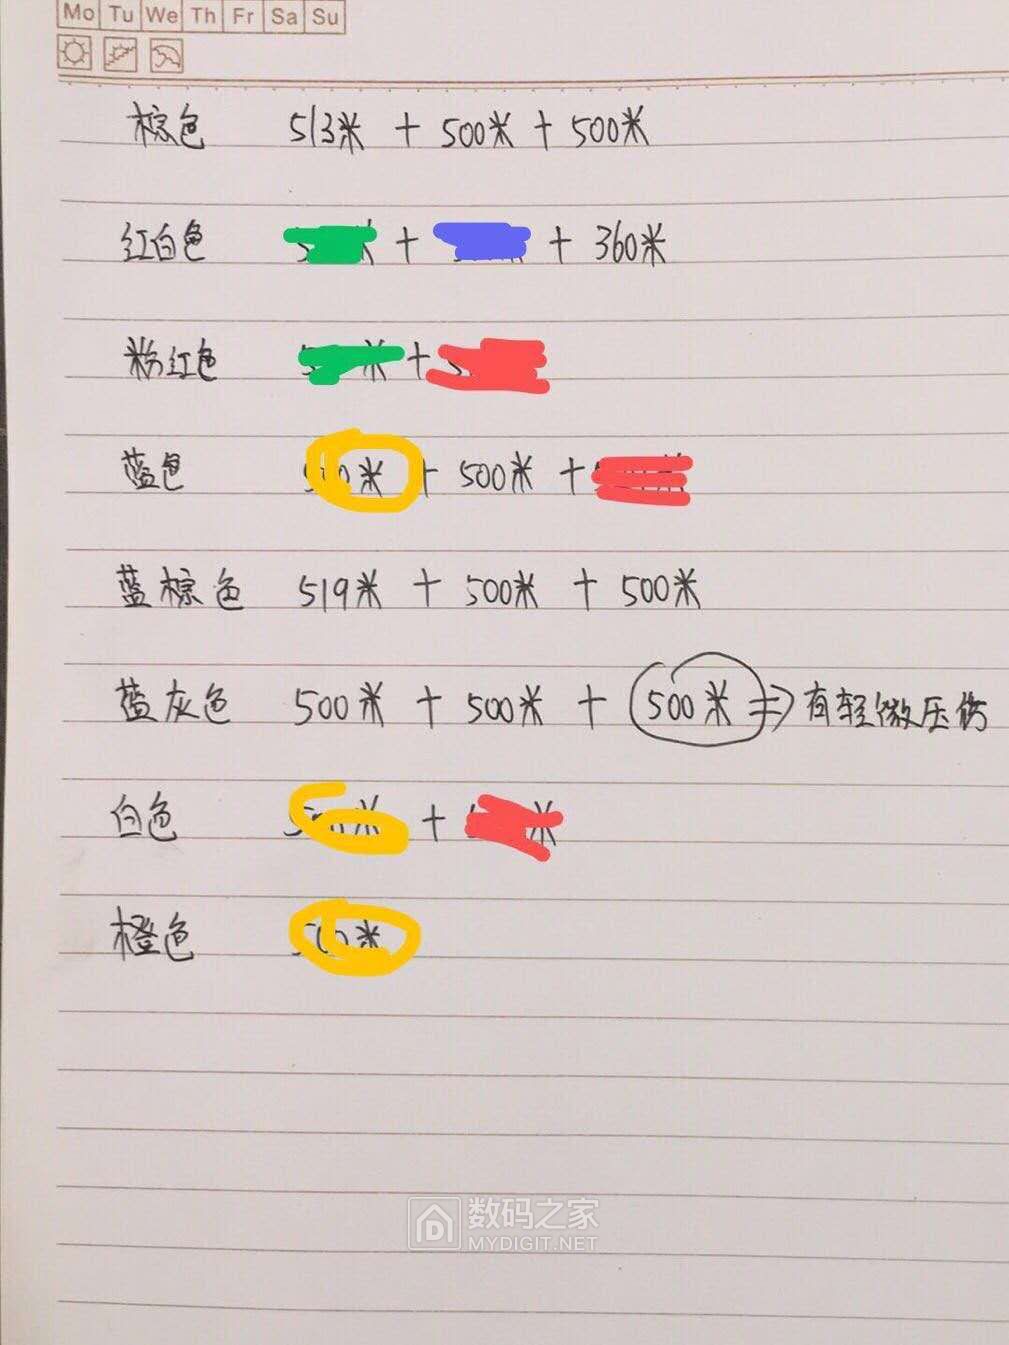 Mo Tu We Th Fr Sa Su
棕色 513米 + 500米 + 500米
红白色 + + 360米
粉红色 米 +
蓝色 米 + 500米 +
蓝棕色 519米 + 500米 + 500米
蓝灰色 500米 + 500米 + 500米 => 有轻微压伤
白色 米 + 米
橙色 500米
数码之家
MYDIGIT.NET